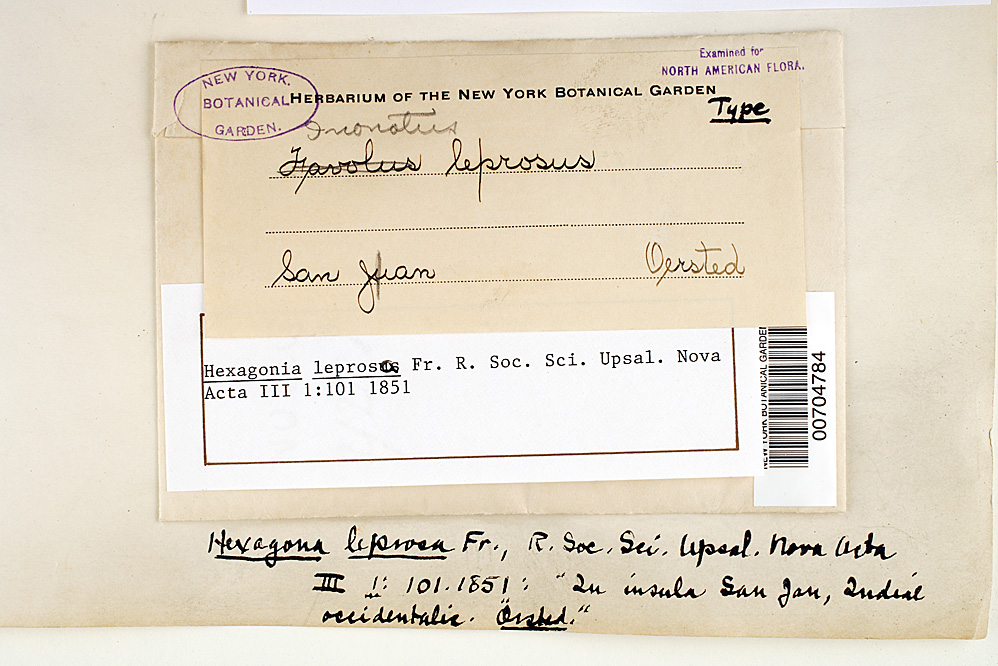 Examined for
NORTH AMERICAN FLORA.
NEW YORK.
BOTANICAL
GARDEN.
HERBARIUM OF THE NEW YORK BOTANICAL GARDEN
Type
Inonotus
Favolus leprosus
San Juan Oersted
Hexagonia leprosa Fr. R. Soc. Sci. Upsal. Nova
Acta III 1:101 1851
NEW YORK BOTANICAL GARDEN
00704784
Hexagona leprosa Fr., R. Soc. Sci. Upsal. Nova Acta
III 1: 101. 1851: "In insula San Jan, Indiae
occidentalis. Örsted."